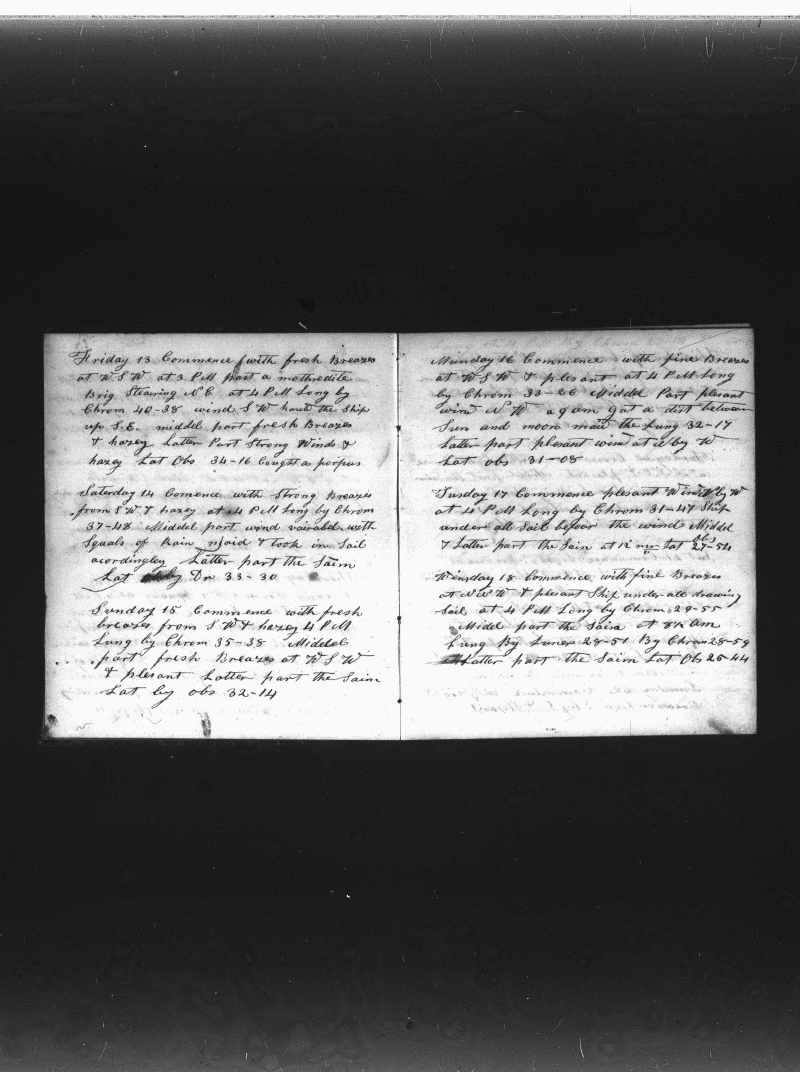 Friday 13 Commence with fresh Breazes
at W S W at 3 P M part a mothredite
Brig Stearing N E. at 4 P M Long by
Chrom 40-38 wind S W the Ship
up S.E. middel part fresh Breazes
& hazey Latter Part Strong Winds &
hazey Lat Obs 34-16 Cought a porpus
Saterday 14 Comence with Strong Breazes
from S W & hazey at 4 P M Long by Chrom
37-48 Middel part wind vairabel with
Squals of Rain maid & took in Sail
acordingley Latter part the Saim
Lat by Dr 33-30
Sunday 15 Commence with fresh
breazes from S W & hazey 4 P M
Lung by Chrom 35-38 Middel
part fresh Breazes at W S W
& plesant Latter part the Saim
Lat by obs 32-14
Munday 16 Commence with fine Breazes
at W S W & plesant at 4 P M Long
by Chrom 33-26 Middel Part plesant
win N W a dist between
Sun and moon maid the Lung 32-17
Latter part plesant win at N by W
Lat obs 31-08
Tusday 17 Commence plesant Wind N by W
at 4 P M Long by Chrom 31-47 Ship
under all Sail befoar the wind Middel
& Latter part the Saim at 12 Lat obs 27-54
Winsday 18 Commence with fine Breazes
at N N W & plesant Ship under all drawing
Sail at 4 P M Long by Chrom 29-55
Middel part the Saim at am
Lung By Luner 28-51 By Chrom 28-59
Latter part the Saim Lat Ob 25-44